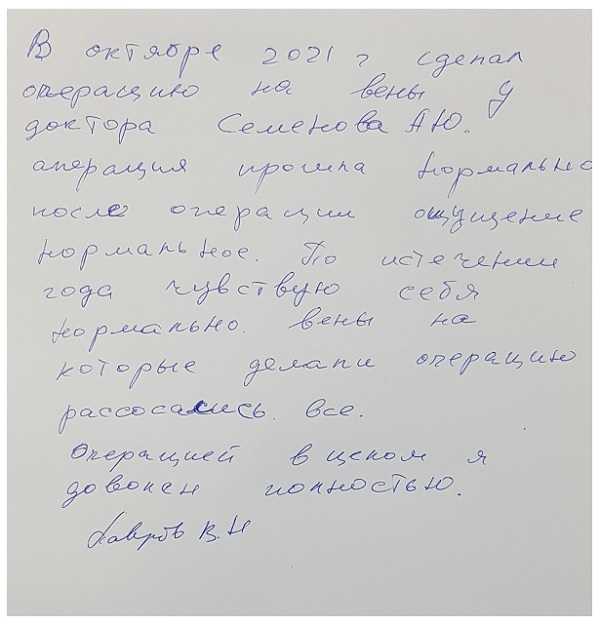 В октябре 2021 г сделал
операцию на вены у
доктора Семенова А Ю.
операция прошла нормально
после операции ощущение
нормальное. По истечении
года чувствую себя
нормально. вены на
которые делали операцию
рассосались. все.
Операцией в целом я
доволен полностью.
В. Н